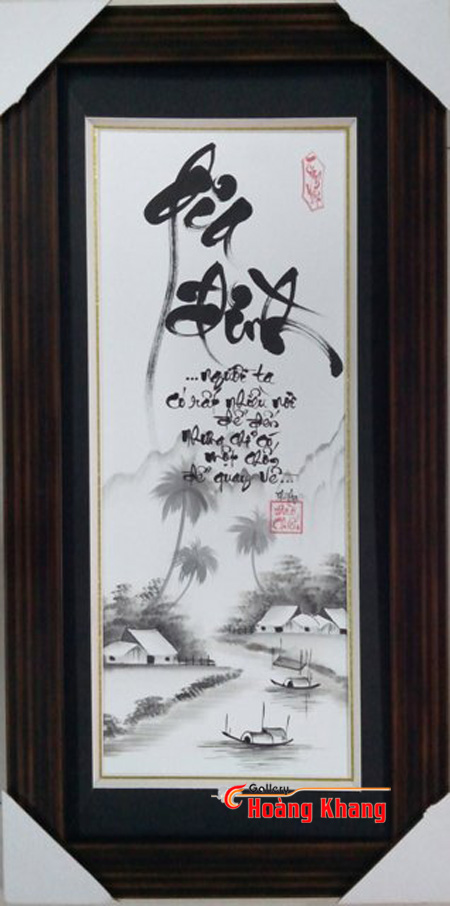 Gia
Đình
...người ta
có rất nhiều nơi
để đến
nhưng chỉ có
một chốn
để quay về...
Gallery
Hoàng Khang